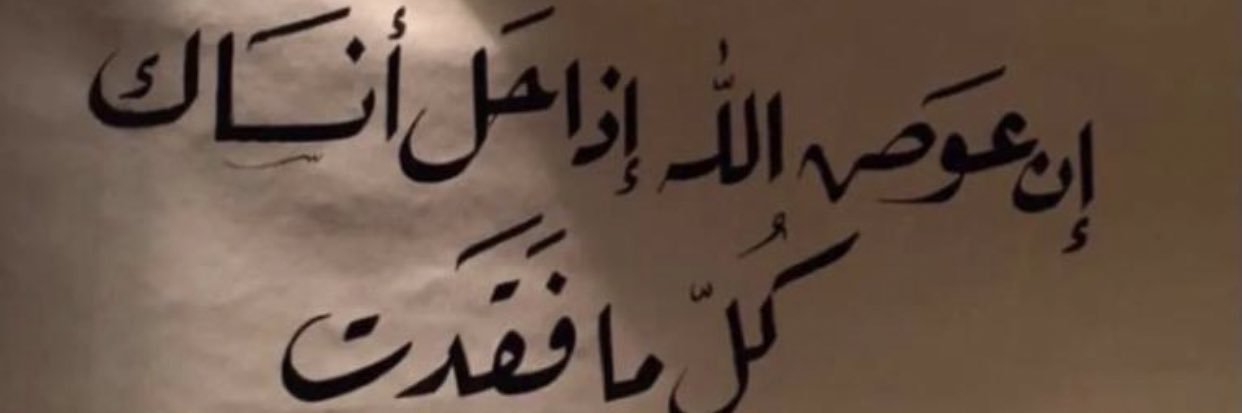 إن عَوَض الله إذا حَل أنسَاك
كُلّ ما فَقَدَت